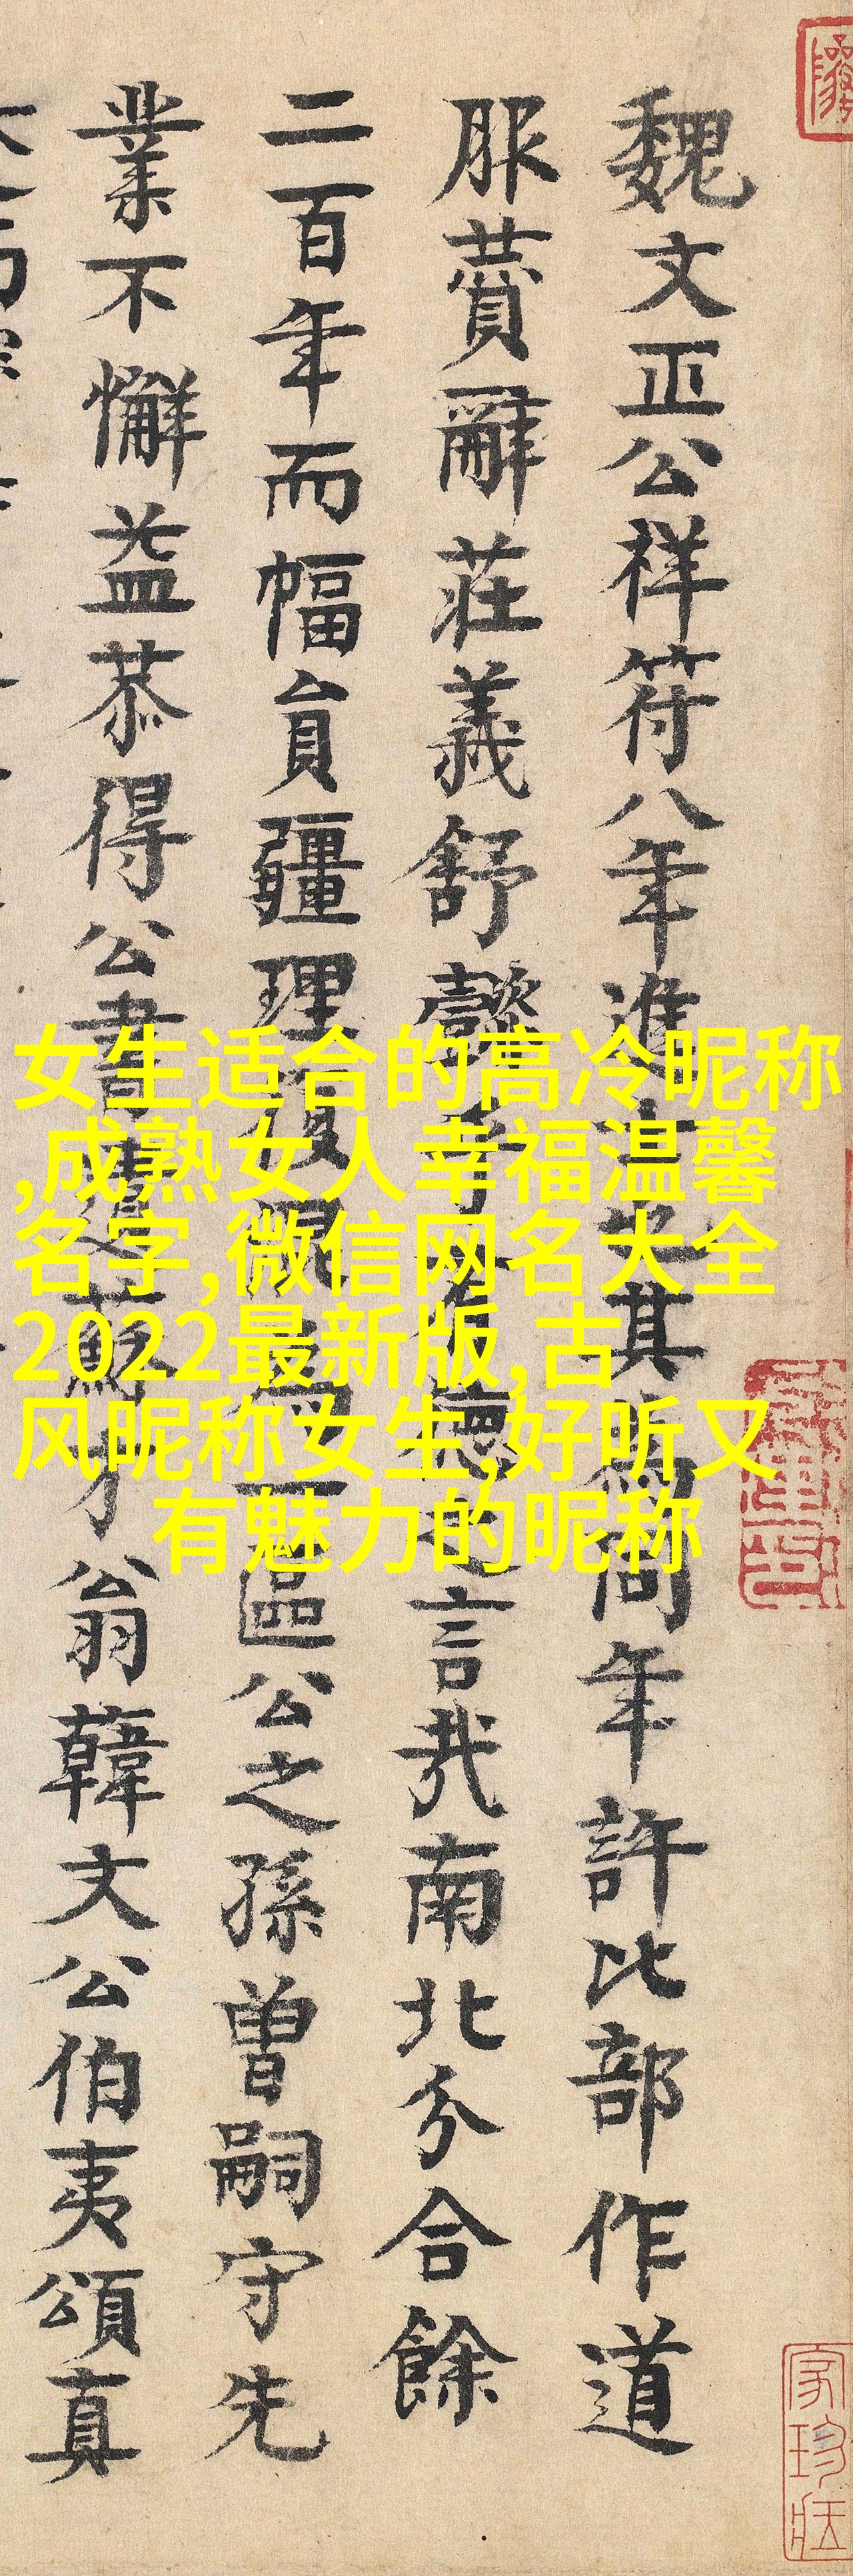 魏文正公祥符八年進士其為同年許比部作道
服贊辭莊義舒懿乎有德之言哉南北分合餘
二百年而幅員疆理復混為一區公之孫曾嗣守先
業不懈益恭得公書蘇才翁韓文公伯夷頌真
女生适合的高冷昵称
,成熟女人幸福温馨
名字,微信网名大全
2022最新版,古
风昵称女生,好听又
有魅力的昵称